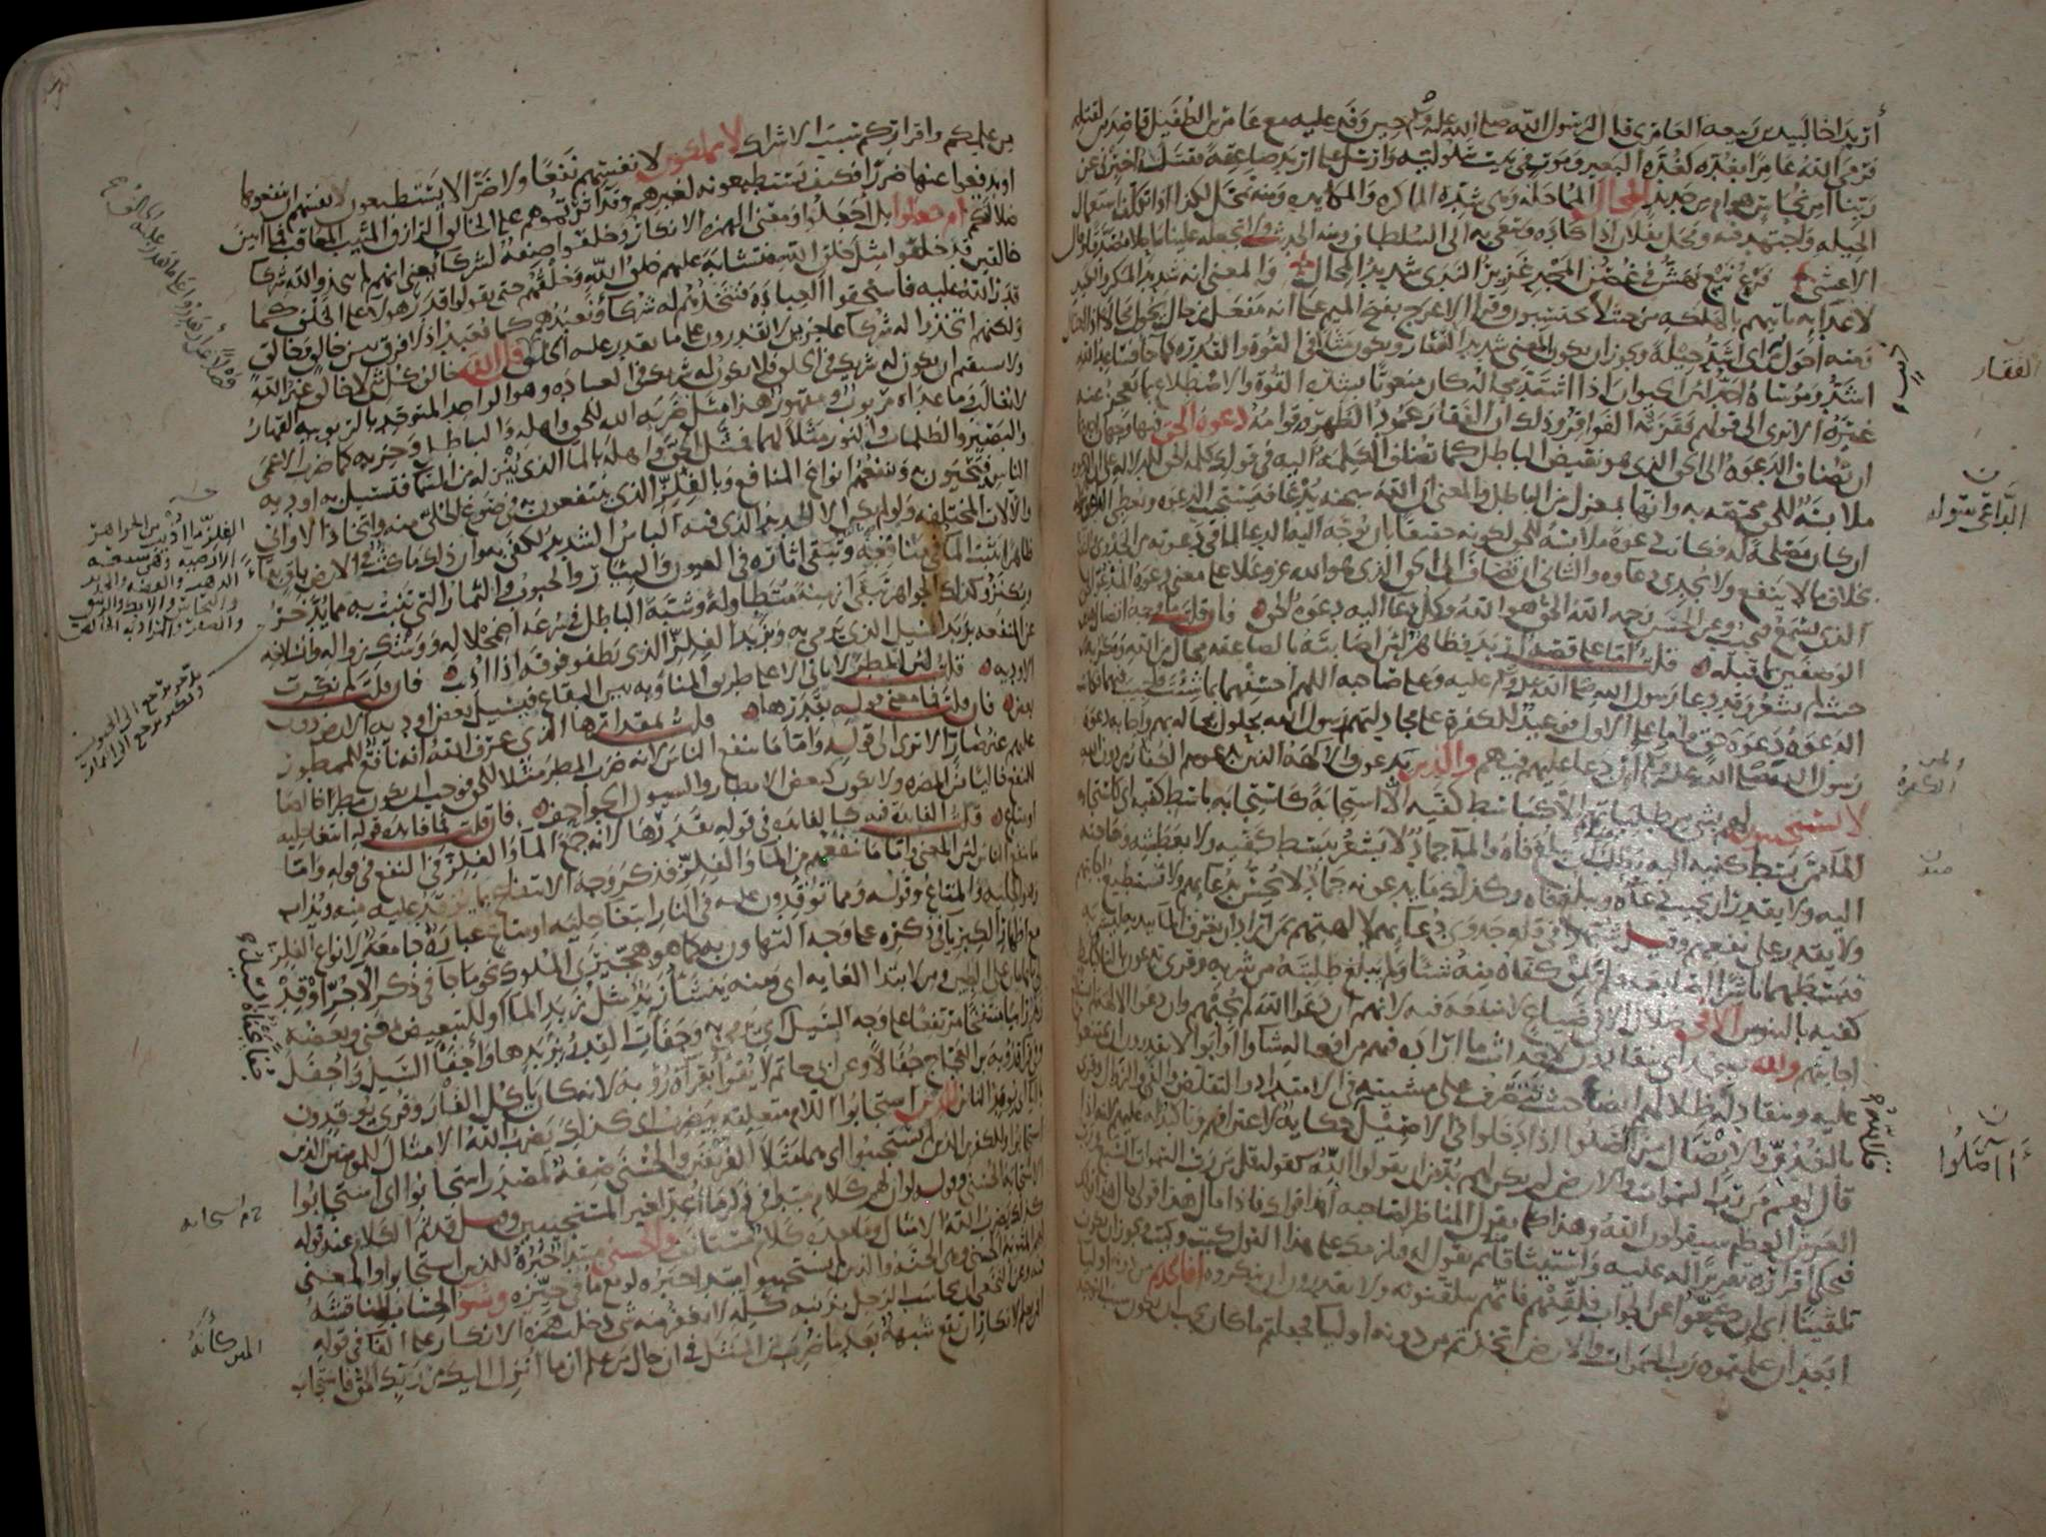 أربد أخا لبيد بن ربيعة العامري قال لرسول الله صلى الله عليه وسلم حين وفد عليه مع عامر بن الطفيل قاصدين لقتله
فرمى الله عامرا بغدة كغدة البعير وموت في بيت سلولية وأرسل على أربد صاعقة فقتلته أخبرني عن
ربنا أمن نحاس هو أم من حديد المحال المماحلة وهي شدة المماكرة والمكايدة ومنه تمحل لكذا إذا تكلف استعمال
الحيلة واجتهد فيه ومحل بفلان إذا كاده وسعى به إلى السلطان ومنه الحديث ولا تجعله علينا ماحلا مصدقا وقال
الأعشى فرع نبع يهش في غصن المجد غزير الندى شديد المحال والمعنى أنه شديد المكر والكيد
لأعدائه يأتيهم بالهلكة من حيث لا يحتسبون وقرأ الأعرج بفتح الميم على أنه مفعل من حال يحول محالا إذا احتال
ومنه أحول من ذئب أي أشد حيلة ويجوز أن يكون المعنى شديد الفقار ويكون مثلا في القوة والقدرة كما جاء فساعد الله
أشد وموساه أحد لأن الحيوان إذا اشتد محاله كان منعوتا بشدة القوة والاضطلاع بما يعجز عنه
غيره ألا ترى إلى قولهم فقرته الفواقر وذلك أن الفقار عمود الظهر وقوامه دعوة الحق فيها وجهان أحدهما
أن تضاف الدعوة إلى الحق الذي هو نقيض الباطل كما تضاف الكلمة إليه في قولك كلمة الحق للدلالة على أن الدعوة
ملابسة للحق مختصة به وأنها بمعزل من الباطل والمعنى أن الله سبحانه يدعى فيستجيب الدعوة ويعطي الداعي سؤاله
إن كان مصلحة له فكانت دعوة ملابسة للحق لكونه حقيقا بأن يوجه إليه الدعاء لما في دعوته من الجدوى والنفع
بخلاف ما لا ينفع ولا يجدي دعاؤه والثاني أن تضاف إلى الحق الذي هو الله عز وعلا على معنى دعوة المدعو الحق
الذي يسمع فيجيب وعن الحسن رحمه الله الحق هو الله وكل دعاء إليه دعوة الحق فإن قلت ما وجه اتصال هذين
الوصفين بما قبله قلت أما على قصة أربد فظاهر لأن إصابته بالصاعقة محال من الله ومكر به من
حيث لم يشعر وقد دعا رسول الله صلى الله عليه وسلم عليه وعلى صاحبه اللهم اخسفهما بما شئت فأجيب فيهما فكانت
الدعوة دعوة حق وأما على الأول فوعيد للكفرة على مجادلتهم رسول الله بحلول محاله بهم وإجابة دعوة
رسول الله صلى الله عليه وسلم إن دعا عليهم فيهم والذين يدعون والآلهة الذين يدعوهم الكفار من دون الله
لا يستجيبون لهم بشيء من طلباتهم إلا كباسط كفيه إلا استجابة كاستجابة باسط كفيه أي كاستجابة
الماء من بسط كفيه إليه يطلب منه أن يبلغ فاه والماء جماد لا يشعر ببسط كفيه ولا بعطشه وحاجته
إليه ولا يقدر أن يجيب دعاءه ويبلغ فاه وكذلك ما يدعونه جماد لا يحس بدعائهم ولا يستطيع إجابتهم
ولا يقدر على نفعهم وقيل شبهوا في قلة جدوى دعائهم لآلهتهم بمن أراد أن يغرف الماء بيديه ليشربه
فبسطهما ناشرا أصابعه فلم تلق كفاه منه شيئا ولم يبلغ طلبته من شربه وقرئ تدعون بالتاء كباسط
كفيه بالتنوين إلا في ضلال إلا في ضياع لا منفعة فيه لأنهم إن دعوا الله لم يجبهم وإن دعوا الآلهة لم تستطع
إجابتهم ولله يسجد أي ينقادون لإحداث ما أراده فيهم من أفعاله شاؤا أو أبوا لا يقدرون أن يمتنعوا
عليه وينقاد له ظلالهم أيضا حيث تتصرف على مشيئته في الامتداد والتقلص والفيء والزوال وقرئ
بالغدو والإيصال من آصلوا إذا دخلوا في الأصيل حكاية لاعترافهم وتأكيد له عليهم لأنه إذا
قال لهم من رب السموات والأرض لم يكن لهم بد من أن يقولوا الله كقوله قل من رب السموات السبع ورب
العرش العظيم سيقولون الله وهذا كما يقول المناظر لصاحبه أهذا قولك فإذا قال هذا قولي قال هذا قولك
فيحكي إقراره تقريرا له عليه واستيثاقا ثم يقول له فيلزمك على هذا القول كيت وكيت ويجوز أن يكون
تلقينا أي إن كعوا عن الجواب فلقنهم فإنهم يتلقنونه ولا يقدرون أن ينكروه أفاتخذتم من دونه أولياء
أبعد أن علمتموه رب السموات والأرض اتخذتم من دونه أولياء فجعلتم ما كان يجب أن يكون سبب التوحيد
الفقار
الداعي سؤله
الكفرة
آصلوا
من علمكم وإقراركم سبب الإشراك لا يملكون لأنفسهم نفعا ولا ضرا لا يستطيعون لأنفسهم أن ينفعوها
أو يدفعوا عنها ضررا فكيف يستطيعونه لغيرهم وقد آثرتموهم على الخالق الرازق المثيب المعاقب فما أبين
ضلالتكم أم جعلوا بل أجعلوا ومعنى الهمزة الإنكار وخلقوا صفة لشركاء يعني أنهم لم يتخذوا لله شركاء
خالقين قد خلقوا مثل خلق الله فتشابه عليهم خلق الله وخلقهم حتى يقولوا قدر هؤلاء على الخلق كما
قدر الله عليه فاستحقوا العبادة فنتخذهم له شركاء ونعبدهم كما يعبد إذ لا فرق بين خالق وخالق
ولكنهم اتخذوا له شركاء عاجزين لا يقدرون على ما يقدر عليه الخلق قل الله خالق كل شيء لا خالق غير الله
ولا يستقيم أن يكون له شريك في الخلق فلا يكون له شريك في العبادة وهو الواحد المتوحد بالربوبية القهار
لا يغالب وما عداه مربوب ومقهور هذا مثل ضربه الله للحق وأهله والباطل وحزبه كما ضرب الأعمى
والبصير والظلمات والنور مثلا لهما فمثل الحق وأهله بالماء الذي ينزله من السماء فتسيل به أودية
الناس فيحيون به وينفعهم أنواع المنافع وبالفلز الذي ينتفعون به في صوغ الحلي منه واتخاذ الأواني
والآلات المختلفة ولو لم يكن إلا الحديد الذي فيه البأس الشديد لكفى به وأن ذلك ماكث في الأرض باق بقاء
ظاهرا يثبت الماء في منافعه وتبقى آثاره في العيون والبئار والحبوب والثمار التي تنبت به مما يدخر
ويكنز وكذلك الجواهر تبقى أزمنة متطاولة وشبه الباطل في سرعة اضمحلاله ووشك زواله وانسلاخه
عن المنفعة بزبد السيل الذي يرمي به وبزبد الفلز الذي يطفو فوقه إذا أذيب فإن قلت لم نكرت
الأودية قلت لأن المطر لا يأتي إلا على طريق المناوبة بين البقاع فيسيل بعض أودية الأرض دون
بعض فإن قلت فما معنى قوله بقدرها قلت بمقدارها الذي عرف الله أنه نافع للممطور
عليهم غير ضار ألا ترى إلى قوله وأما ما ينفع الناس لأنه ضرب المطر مثلا للحق فوجب أن يكون مطرا خالصا
للنفع خاليا من المضرة ولا يكون كبعض الأمطار والسيول الجواحف فإن قلت فما فائدة قوله ابتغاء حلية
أو متاع قلت الفائدة فيه كالفائدة في قوله بقدرها لأنه جمع الماء والفلز في النفع في قوله وأما
ما ينفع الناس لأن المعنى وأما ما ينفعهم من الماء والفلز فذكر وجه الانتفاع بما يوقد عليه منه ويذاب
وهو الحلية والمتاع وقوله ومما توقدون عليه في النار ابتغاء حلية أو متاع عبارة جامعة لأنواع الفلز
مع إظهار الكبرياء في ذكره على وجه التهاون به كما هو هجيرى الملوك نحو ما جاء في ذكر الآجر أوقد
لي يا هامان على الطين ومن لابتداء الغاية أي ومنه ينشأ زبد مثل زبد الماء أو للتبعيض بمعنى وبعضه
زبد رابيا منتفخا مرتفعا على وجه السيل أي يرمي به وجفأت القدر بزبدها وأجفأ السيل وأجفل
وفي قراءة رؤبة بن العجاج جفالا وعن أبي حاتم لا يقرأ بقراءة رؤبة لأنه كان يأكل الفار وقرئ يوقدون
بالياء أي يوقد الناس للذين استجابوا اللام متعلقة بيضرب أي كذلك يضرب الله الأمثال للمؤمنين الذين
استجابوا وللكافرين الذين لم يستجيبوا أي هما مثلا الفريقين والحسنى صفة لمصدر استجابوا أي استجابوا
الاستجابة الحسنى وقوله لو أن لهم كلام مبتدأ في ذكر ما أعد لغير المستجيبين وقيل قد تم الكلام عند قوله
كذلك يضرب الله الأمثال وما بعده كلام مستأنف والحسنى مبتدأ خبره للذين استجابوا والمعنى
لهم المثوبة الحسنى وهي الجنة والذين لم يستجيبوا مبتدأ خبره لو مع ما في حيزه وسوء الحساب المناقشة
فيه وعن النخعي أن يحاسب الرجل بذنبه كله لا يغفر منه شيء دخلت همزة الإنكار على الفاء في قوله
أفمن يعلم لإنكار أن تقع شبهة بعد ما ضرب من المثل في أن حال من علم أنما أنزل إليك من ربك الحق فاستجاب
الفلز ما أذيب من الجواهر
الأرضية وهي تسعة
الذهب والفضة والحديد
والنحاس